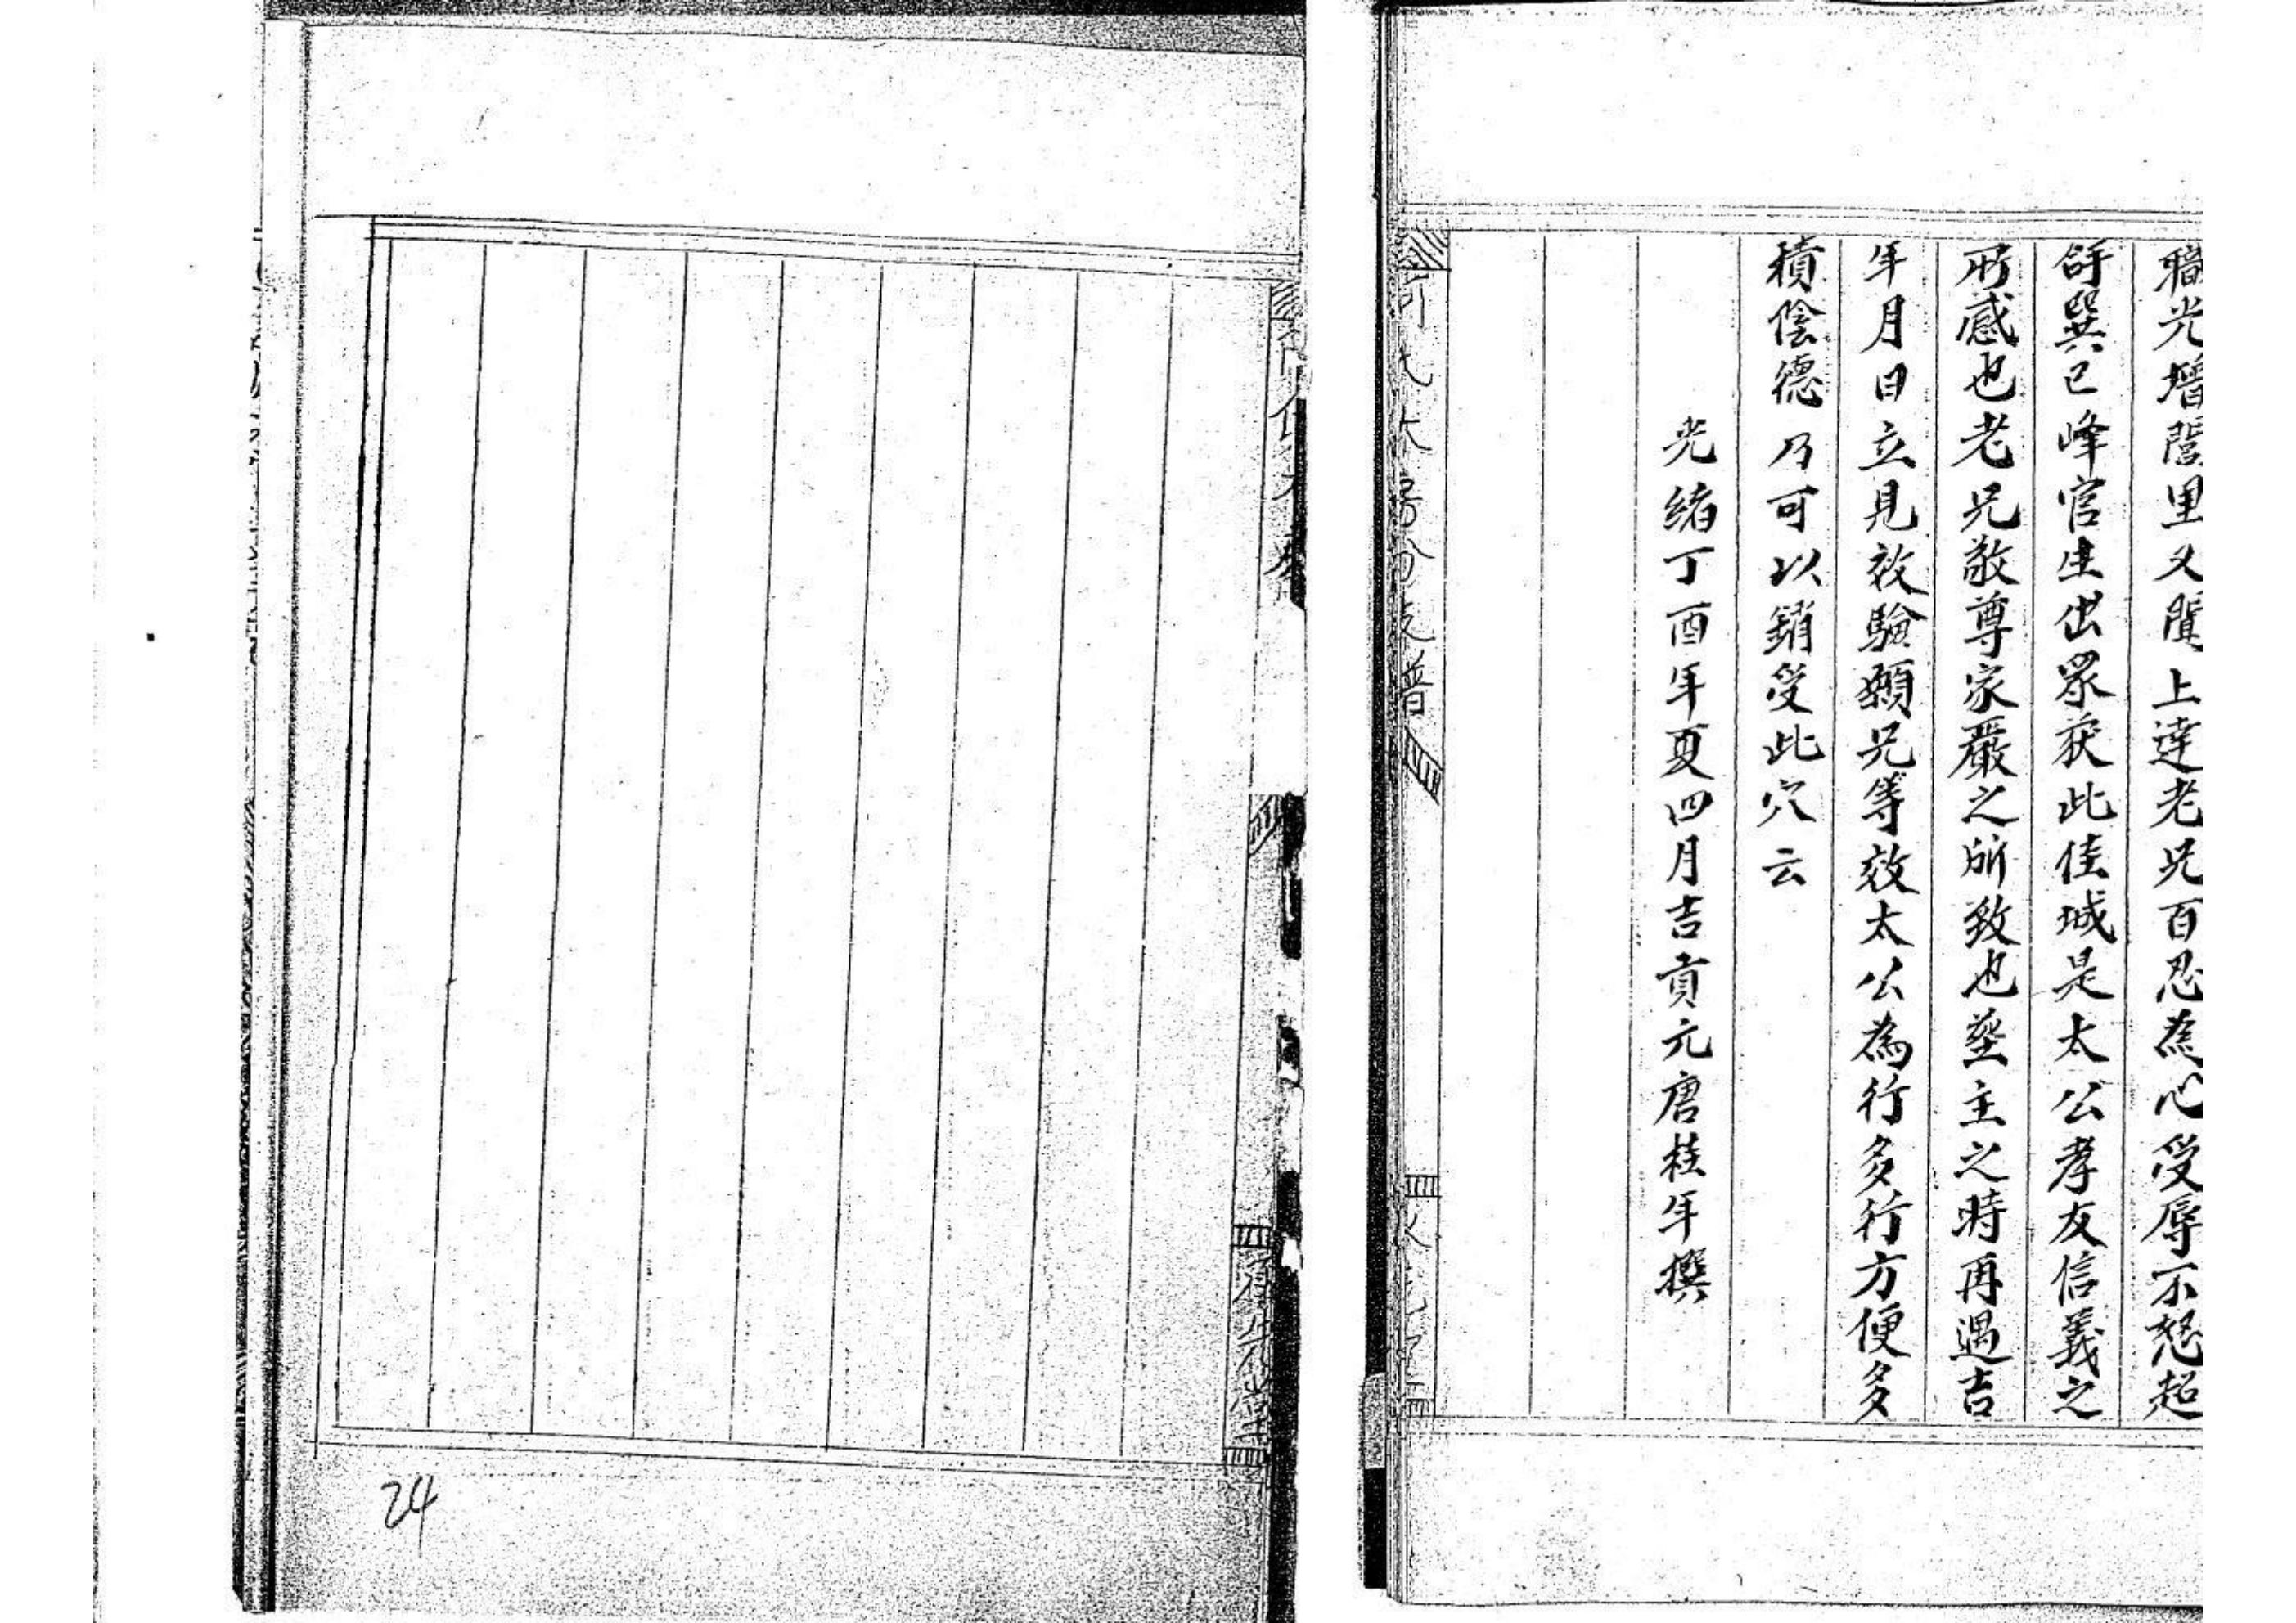 職光增閭里又聞上達老兄百忍為心受辱不怒起
砰巽已峰官生出眾获此佳城是太公孝友信義之
所感也老兄敬尊家嚴之所致也塟主之時再遇吉
年月日立見效驗願兄等效太公為行多行方便多
積陰德乃可以銷受此穴云
光緒丁酉年夏四月吉貢元唐桂年撰
何氏大房分支譜
24